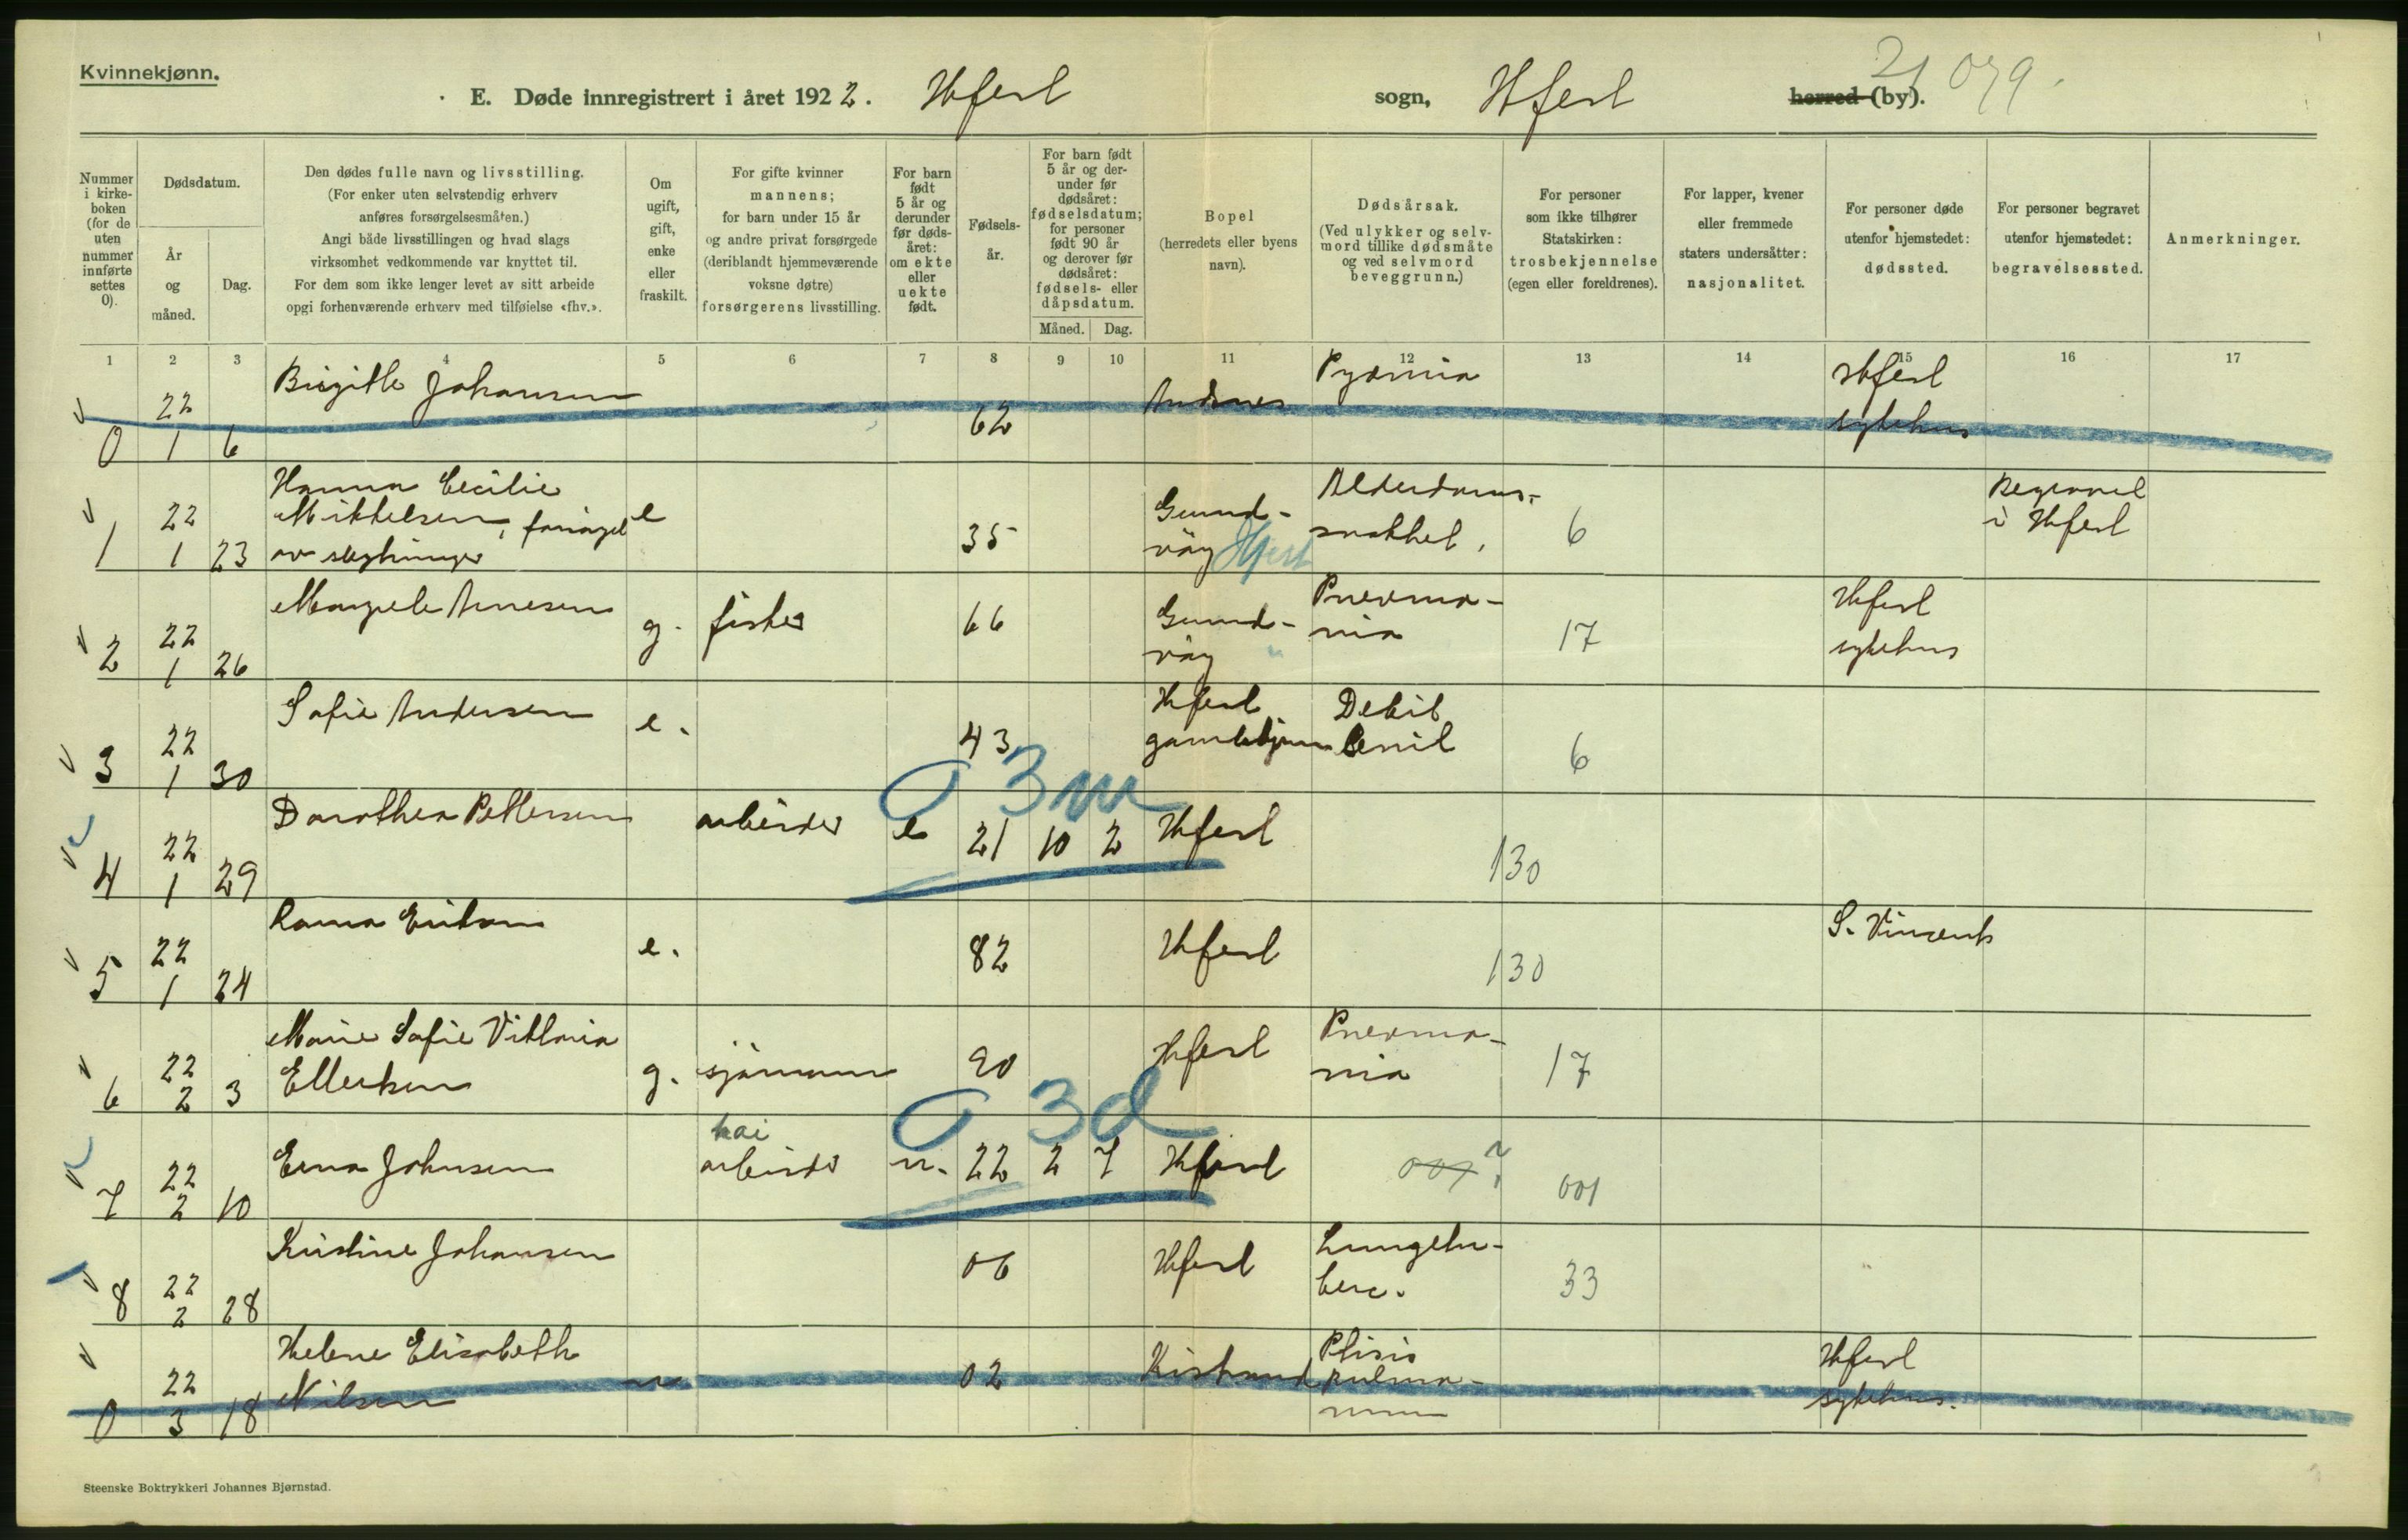 Kvinnekjønn.
E. Døde innregistrert i året 1922. Hfest sogn, Hfest herred (by). 21 079.
Nummer i kirke-boken (for de uten nummer innførte settes 0).
Dødsdatum.
År og måned.
Dag.
Den dødes fulle navn og livsstilling.
(For enker uten selvstendig erhverv
anføres forsørgelsesmåten.)
Angi både livsstillingen og hvad slags
virksomhet vedkommende var knyttet til.
For dem som ikke lenger levet av sitt arbeide
opgi forhenværende erhverv med tilføielse «fhv.».
Om ugift, gift, enke eller fraskilt.
For gifte kvinner
mannens;
for barn under 15 år
og andre privat forsørgede
(deriblandt hjemmeværende
voksne døtre)
forsørgerens livsstilling.
For barn født 5 år og derunder før døds-året: om ekte eller uekte født.
Fødsels-år.
For barn født 5 år og der-under før dødsåret: fødselsdatum; for personer født 90 år og derover før dødsåret: fødsels- eller dåpsdatum.
Måned. Dag.
Bopel
(herredets eller byens
navn).
Dødsårsak.
(Ved ulykker og selv-
mord tillike dødsmåte
og ved selvmord
beveggrunn.)
For personer
som ikke tilhører
Statskirken:
trosbekjennelse
(egen eller foreldrenes).
For lapper, kvener
eller fremmede
staters undersåtter:
nasjonalitet.
For personer døde
utenfor hjemstedet:
dødssted.
For personer begravet
utenfor hjemstedet:
begravelsessted.
Anmerkninger.
1 2 3 4 5 6 7 8 9 10 11 12 13 14 15 16 17
0 22 1 6 Birgitte Johansen 62 Andsnes Pyæmia Hfest sykehus
1 22 1 23 Hanna Cecilie
Mikkelsen, forsörget
av slegtninger e 35 Grund-
våg Hfest Alderdoms-
svakhet. 6 Begravet
i Hfest
2 22 1 26 Margrete Arnesen g. fisker 66 Grund-
våg " Pnevmo-
nia 17 Hfest
sykehus
3 22 1 30 Sofie Andersen e. 43 Hfest
gamlehjem Debil
Senil 6
0 3 m
4 22 1 29 Dorothea Pettersen arbeider e 21 10 2 Hfest 130
5 22 1 24 Laura Eriksen e. 82 Hfest 130 S. Vincents
6 22 2 3 Marie Sofie Viktoria
Ellertsen g. sjömann 90 Hfest Pnevmo-
nia 17
0 3 d
7 22 2 10 Erna Johnsen kai
arbeider u. 22 2 7 Hfest 007 ? 001
8 22 2 28 Kristine Johansen 06 Hfest Lungetu-
berc. 33
0 22 3 18 Helene Elisabeth
Nilsen u 02 Kistrand Ptisis
pulmo-
num Hfest
sykehus.
Steenske Boktrykkeri Johannes Bjørnstad.